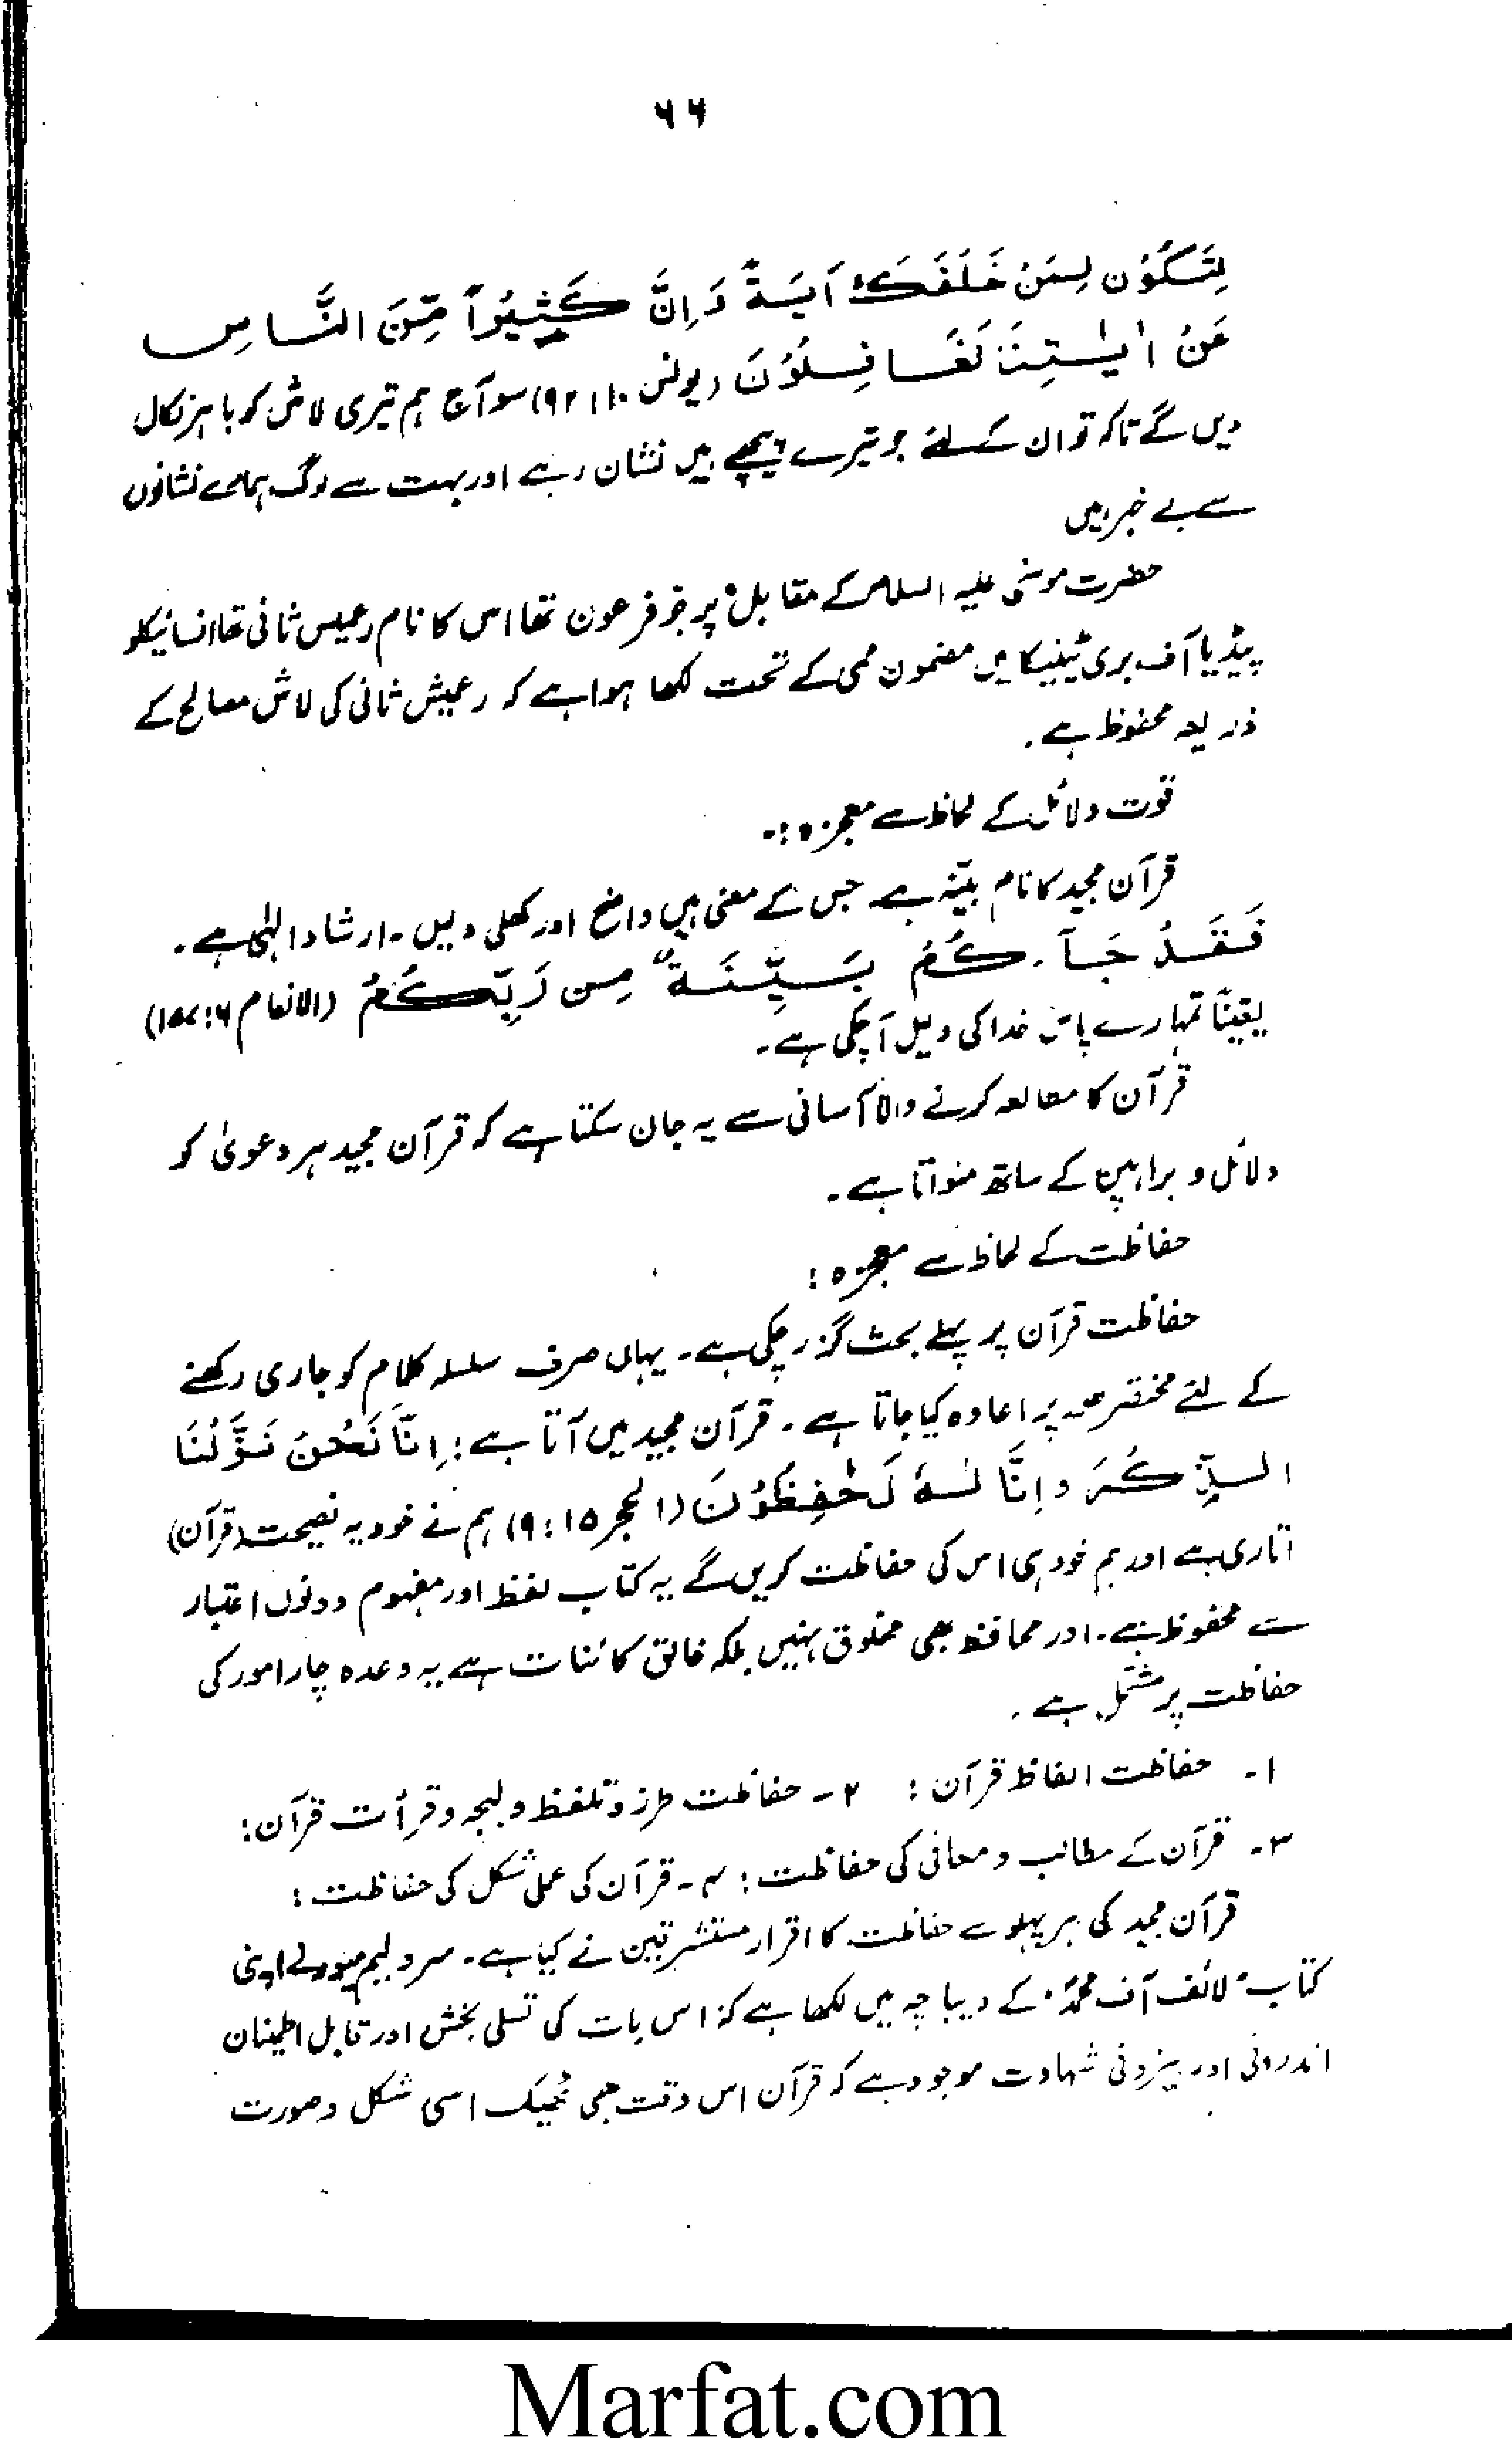 ۶۶
لِتَكُوْنَ لِمَنْ خَلْفَكَ اٰيَةً وَاِنَّ كَثِيْرًا مِّنَ النَّاسِ
عَنْ اٰيٰتِنَا لَغَافِلُوْنَ (یونس ۱۰: ۹۲) سو آج ہم تیری لاش کو باہر نکال
دیں گے تاکہ تو ان کے لئے جو تیرے پیچھے ہیں نشان رہے اور بہت سے لوگ ہمارے نشانوں
سے بے خبر ہیں
حضرت موسٰی علیہ السلام کے مقابل پر جو فرعون تھا اس کا نام رعمیس ثانی تھا انسائیکلو
پیڈیا آف بری ٹینیکا میں مضمون ممی کے تحت لکھا ہوا ہے کہ رعمیش ثانی کی لاش مصالح کے
ذریعہ محفوظ ہے۔
قوت دلائل کے لحاظ سے معجزہ :۔
قرآن مجید کا نام بیّنہ ہے جس کے معنی ہیں واضح اور کھلی دلیل ۔ ارشاد الٰہی ہے ۔
فَقَدْ جَآءَكُمْ بَيِّنَةٌ مِن رَبِّكُمْ (الانعام ۶ : ۱۵۷)
یقیناً تمہارے پاس خدا کی دلیل آچکی ہے ۔
قرآن کا مطالعہ کرنے والا آسانی سے یہ جان سکتا ہے کہ قرآن مجید ہر دعویٰ کو
دلائل و براہین کے ساتھ منواتا ہے ۔
حفاظت کے لحاظ سے معجزہ :
حفاظت قرآن پر پہلے بحث گزر چکی ہے ۔ یہاں صرف سلسلہ کلام کو جاری رکھنے
کے لئے مختصر پر اعادہ کیا جاتا ہے ۔ قرآن مجید میں آتا ہے : اِنَّا نَحْنُ نَزَّلْنَا
الذِّكْرَ وَاِنَّا لَهٗ لَحٰفِظُوْنَ (الحجر ۱۵ : ۹) ہم نے خود یہ نصیحت (قرآن)
اتاری ہے اور ہم خود ہی اس کی حفاظت کریں گے یہ کتاب لفظ اور مفہوم دونوں اعتبار
سے محفوظ ہے ۔ اور محافظ بھی مخلوق نہیں بلکہ خالق کائنات ہے یہ وعدہ چار امور کی
حفاظت پر مشتمل ہے ۔
۱ ۔ حفاظت الفاظ قرآن : ۲ ۔ حفاظت طرز و تلفظ و لہجہ و قرأت قرآن :
۳ ۔ قرآن کے مطالب و معانی کی حفاظت : ۴ ۔ قرآن کی عملی شکل کی حفاظت :
قرآن مجید کی ہر پہلو سے حفاظت کا اقرار مستشرقین نے کیا ہے ۔ سر ولیم میور نے اپنی
کتاب ”لائف آف محمدؐ“ کے دیباچہ میں لکھا ہے کہ اس بات کی تسلی بخش اور قابل اطمینان
اندرونی اور بیرونی شہادت موجود ہے کہ قرآن اس وقت بھی ٹھیک اسی شکل و صورت
Marfat.com